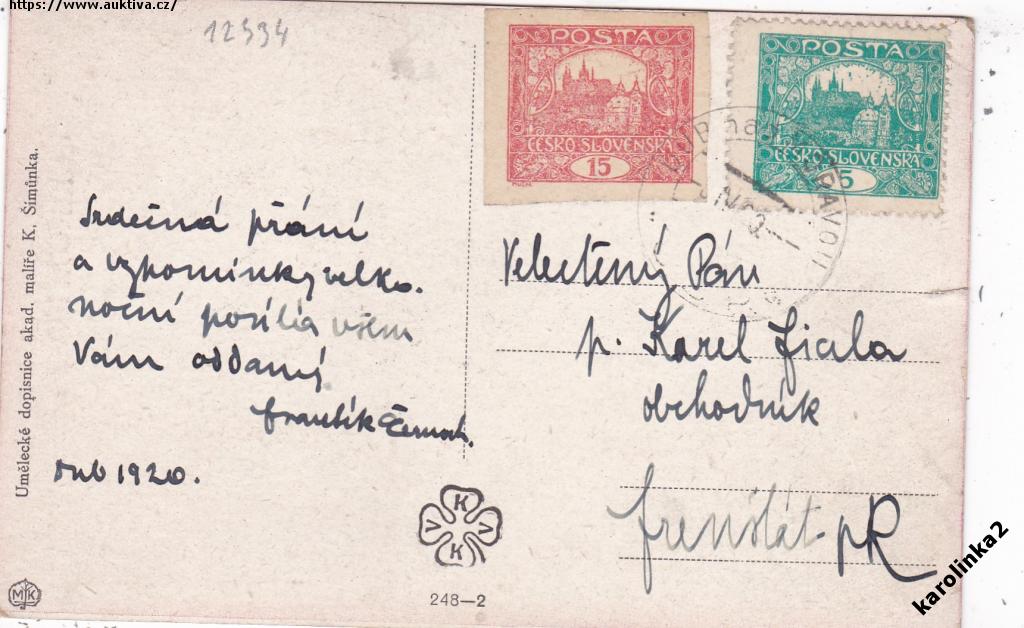 https://www.auktiva.cz/
12594
POSTA
ČESKO-SLOVENSKÁ
15
MUCHA
POSTA
ČESKO-SLOVENSKÁ
5
Srdečná přání
a vzpomínky velko-
noční posílá všem
Vám oddaný
František Černoch.
1920.
Velectěný Pán
p. Karel
obchodník
Frenštát pR
Umělecké dopisnice akad. malíře K. Šimůnka.
V K V K
MK
248—2
karolinka2